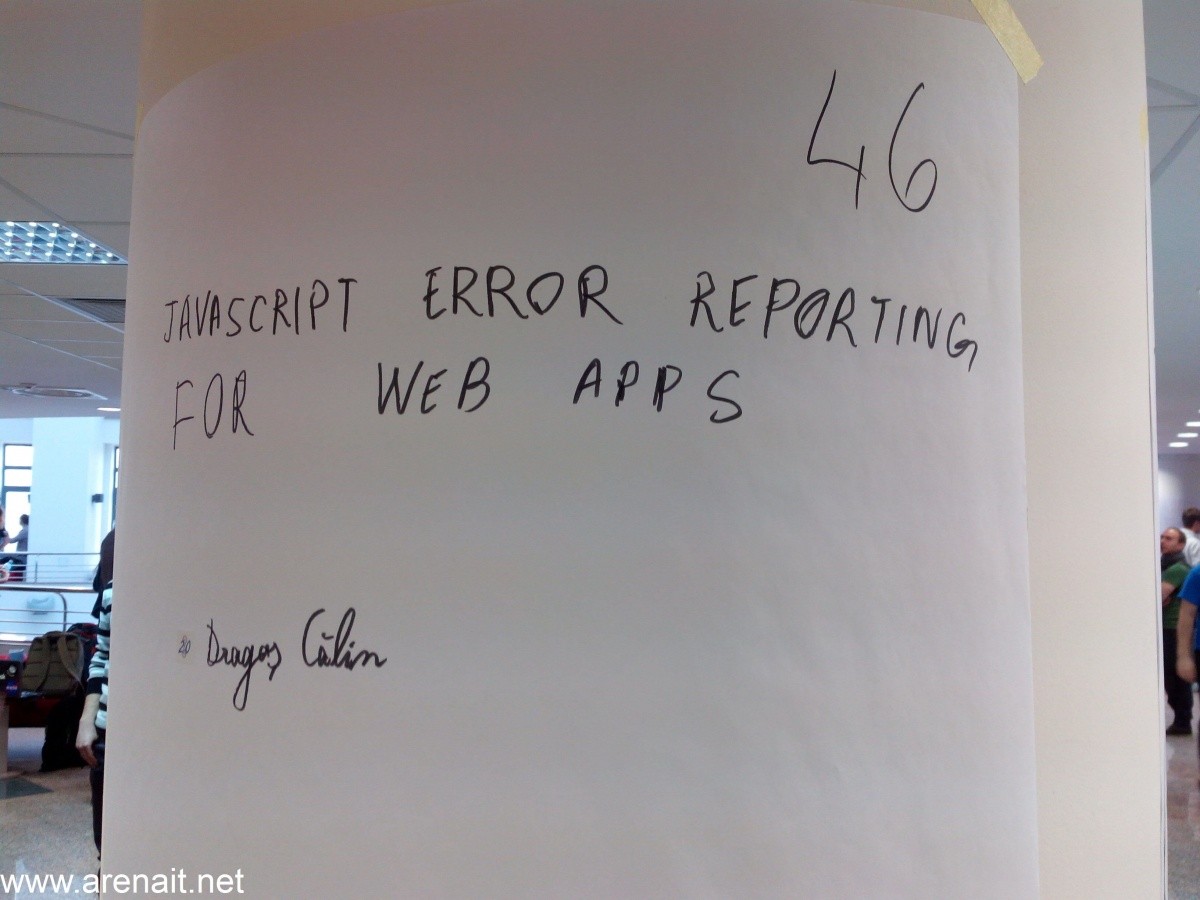 46
JAVASCRIPT ERROR REPORTING
FOR WEB APPS
Dragoș Călin
www.arenait.net